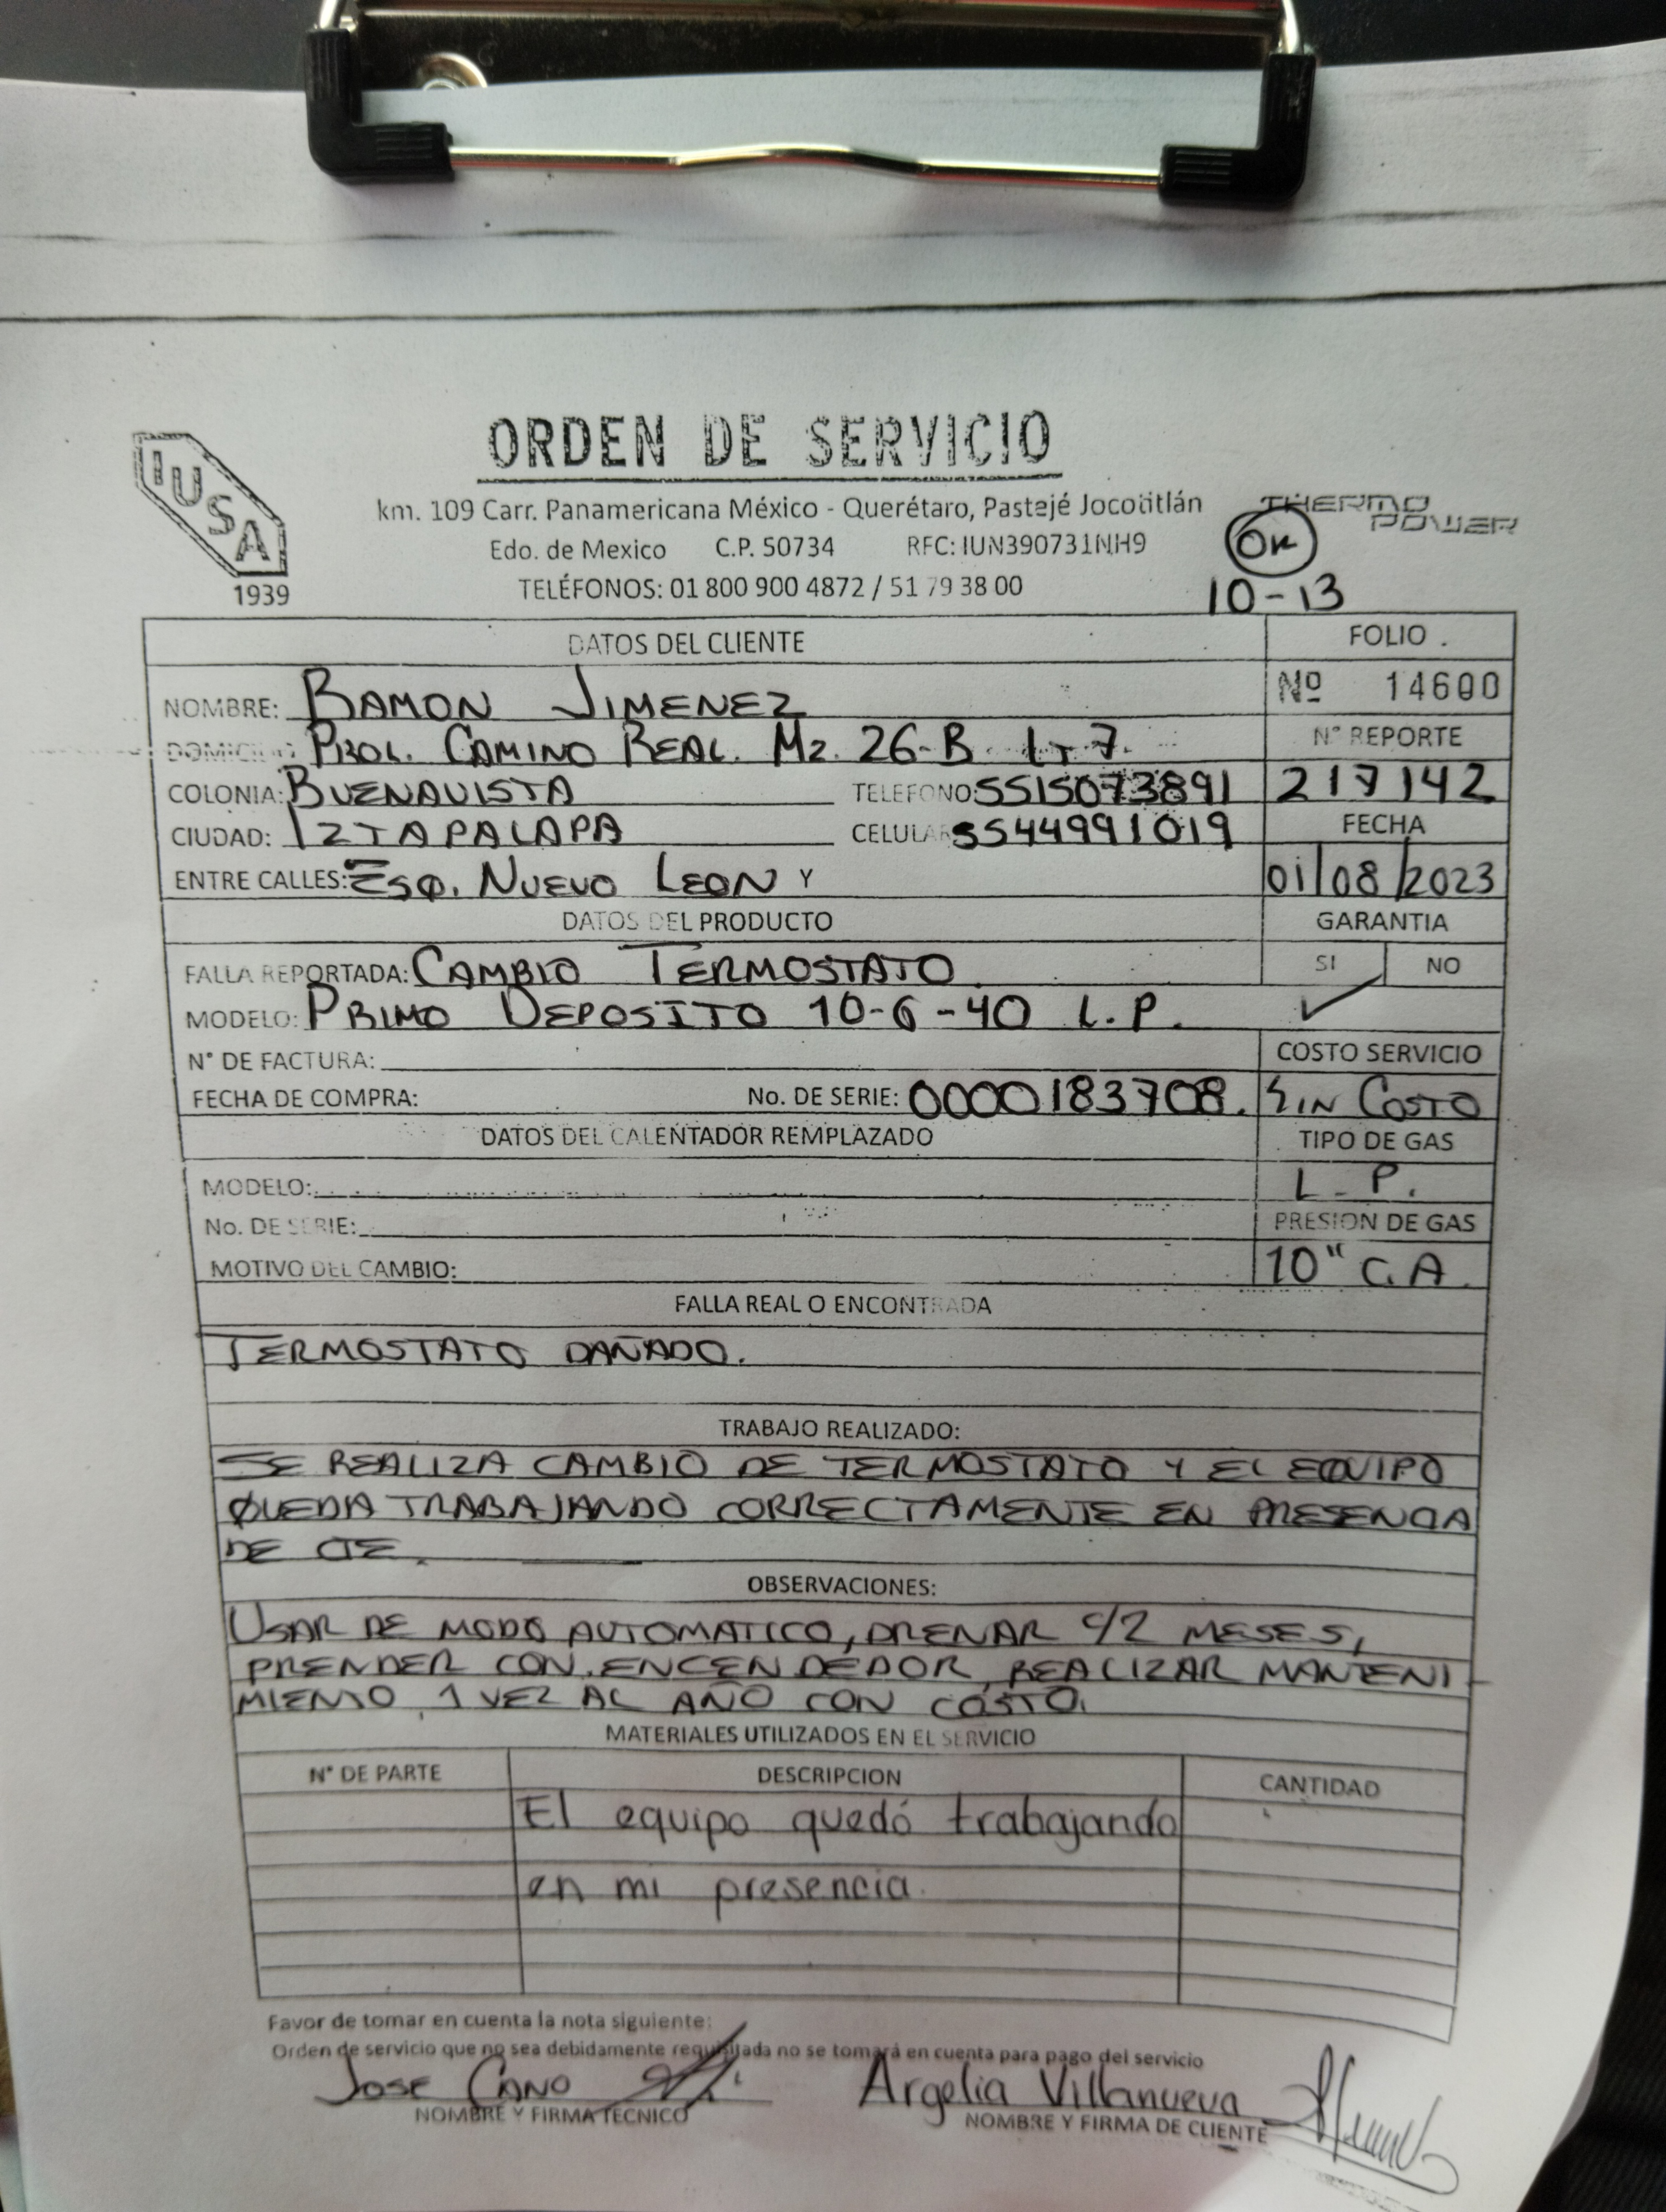 ORDEN DE SERVICIO
IUSA
1939
km. 109 Carr. Panamericana México - Querétaro, Pastejé Jocotitlán
Edo. de Mexico C.P. 50734 RFC: IUN390731NH9
TELÉFONOS: 01 800 900 4872 / 51 79 38 00
THERMO
POWER
OK
10-13
DATOS DEL CLIENTE
FOLIO
NOMBRE: RAMON JIMENEZ
Nº 14600
DOMICILIO: PROL. CAMINO REAL. MZ. 26-B LT 7.
N° REPORTE
COLONIA: BUENAVISTA TELEFONO: 5515073891
217142
CIUDAD: IZTAPALAPA CELULAR: 5544991019
FECHA
ENTRE CALLES: ESQ. NUEVO LEON Y
01/08/2023
DATOS DEL PRODUCTO
GARANTIA
FALLA REPORTADA: CAMBIO TERMOSTATO.
SI NO
MODELO: PRIMO DEPOSITO 10-6-40 L.P.
✓
N° DE FACTURA:
COSTO SERVICIO
FECHA DE COMPRA: No. DE SERIE: 0000183708.
SIN COSTO
DATOS DEL CALENTADOR REMPLAZADO
TIPO DE GAS
MODELO:
L.P.
No. DE SERIE:
PRESION DE GAS
MOTIVO DEL CAMBIO:
10" C.A.
FALLA REAL O ENCONTRADA
TERMOSTATO DAÑADO.
TRABAJO REALIZADO:
SE REALIZA CAMBIO DE TERMOSTATO Y EL EQUIPO
QUEDA TRABAJANDO CORRECTAMENTE EN PRESENCIA
DE CTE.
OBSERVACIONES:
USAR DE MODO AUTOMATICO, DRENAR C/2 MESES,
PRENDER CON ENCENDEDOR, REALIZAR MANTENI-
MIENTO 1 VEZ AL AÑO CON COSTO.
MATERIALES UTILIZADOS EN EL SERVICIO
N° DE PARTE DESCRIPCION CANTIDAD
El equipo quedó trabajando
en mi presencia.
Favor de tomar en cuenta la nota siguiente:
Orden de servicio que no sea debidamente requisitada no se tomará en cuenta para pago del servicio
JOSE CANO
Argelia Villanueva
NOMBRE Y FIRMA TECNICO
NOMBRE Y FIRMA DE CLIENTE